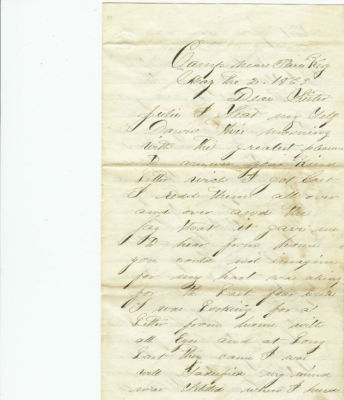 Camp near Paris Ky
the 2. 1863
Dear Sister
Julia I Seat my Self
Down this morning
with the greatest pleasure
To answer your kind
Letter wich I got Last
I redd them all over
and over and the
joy that it gave me
To hear from home
you could not imagin
for my hart was aking
for the Last four weeks
I was Looking for a
Letter from home with
all Eyes and at Long
Last they came I was
well Sadisfied my mind
was when I herd